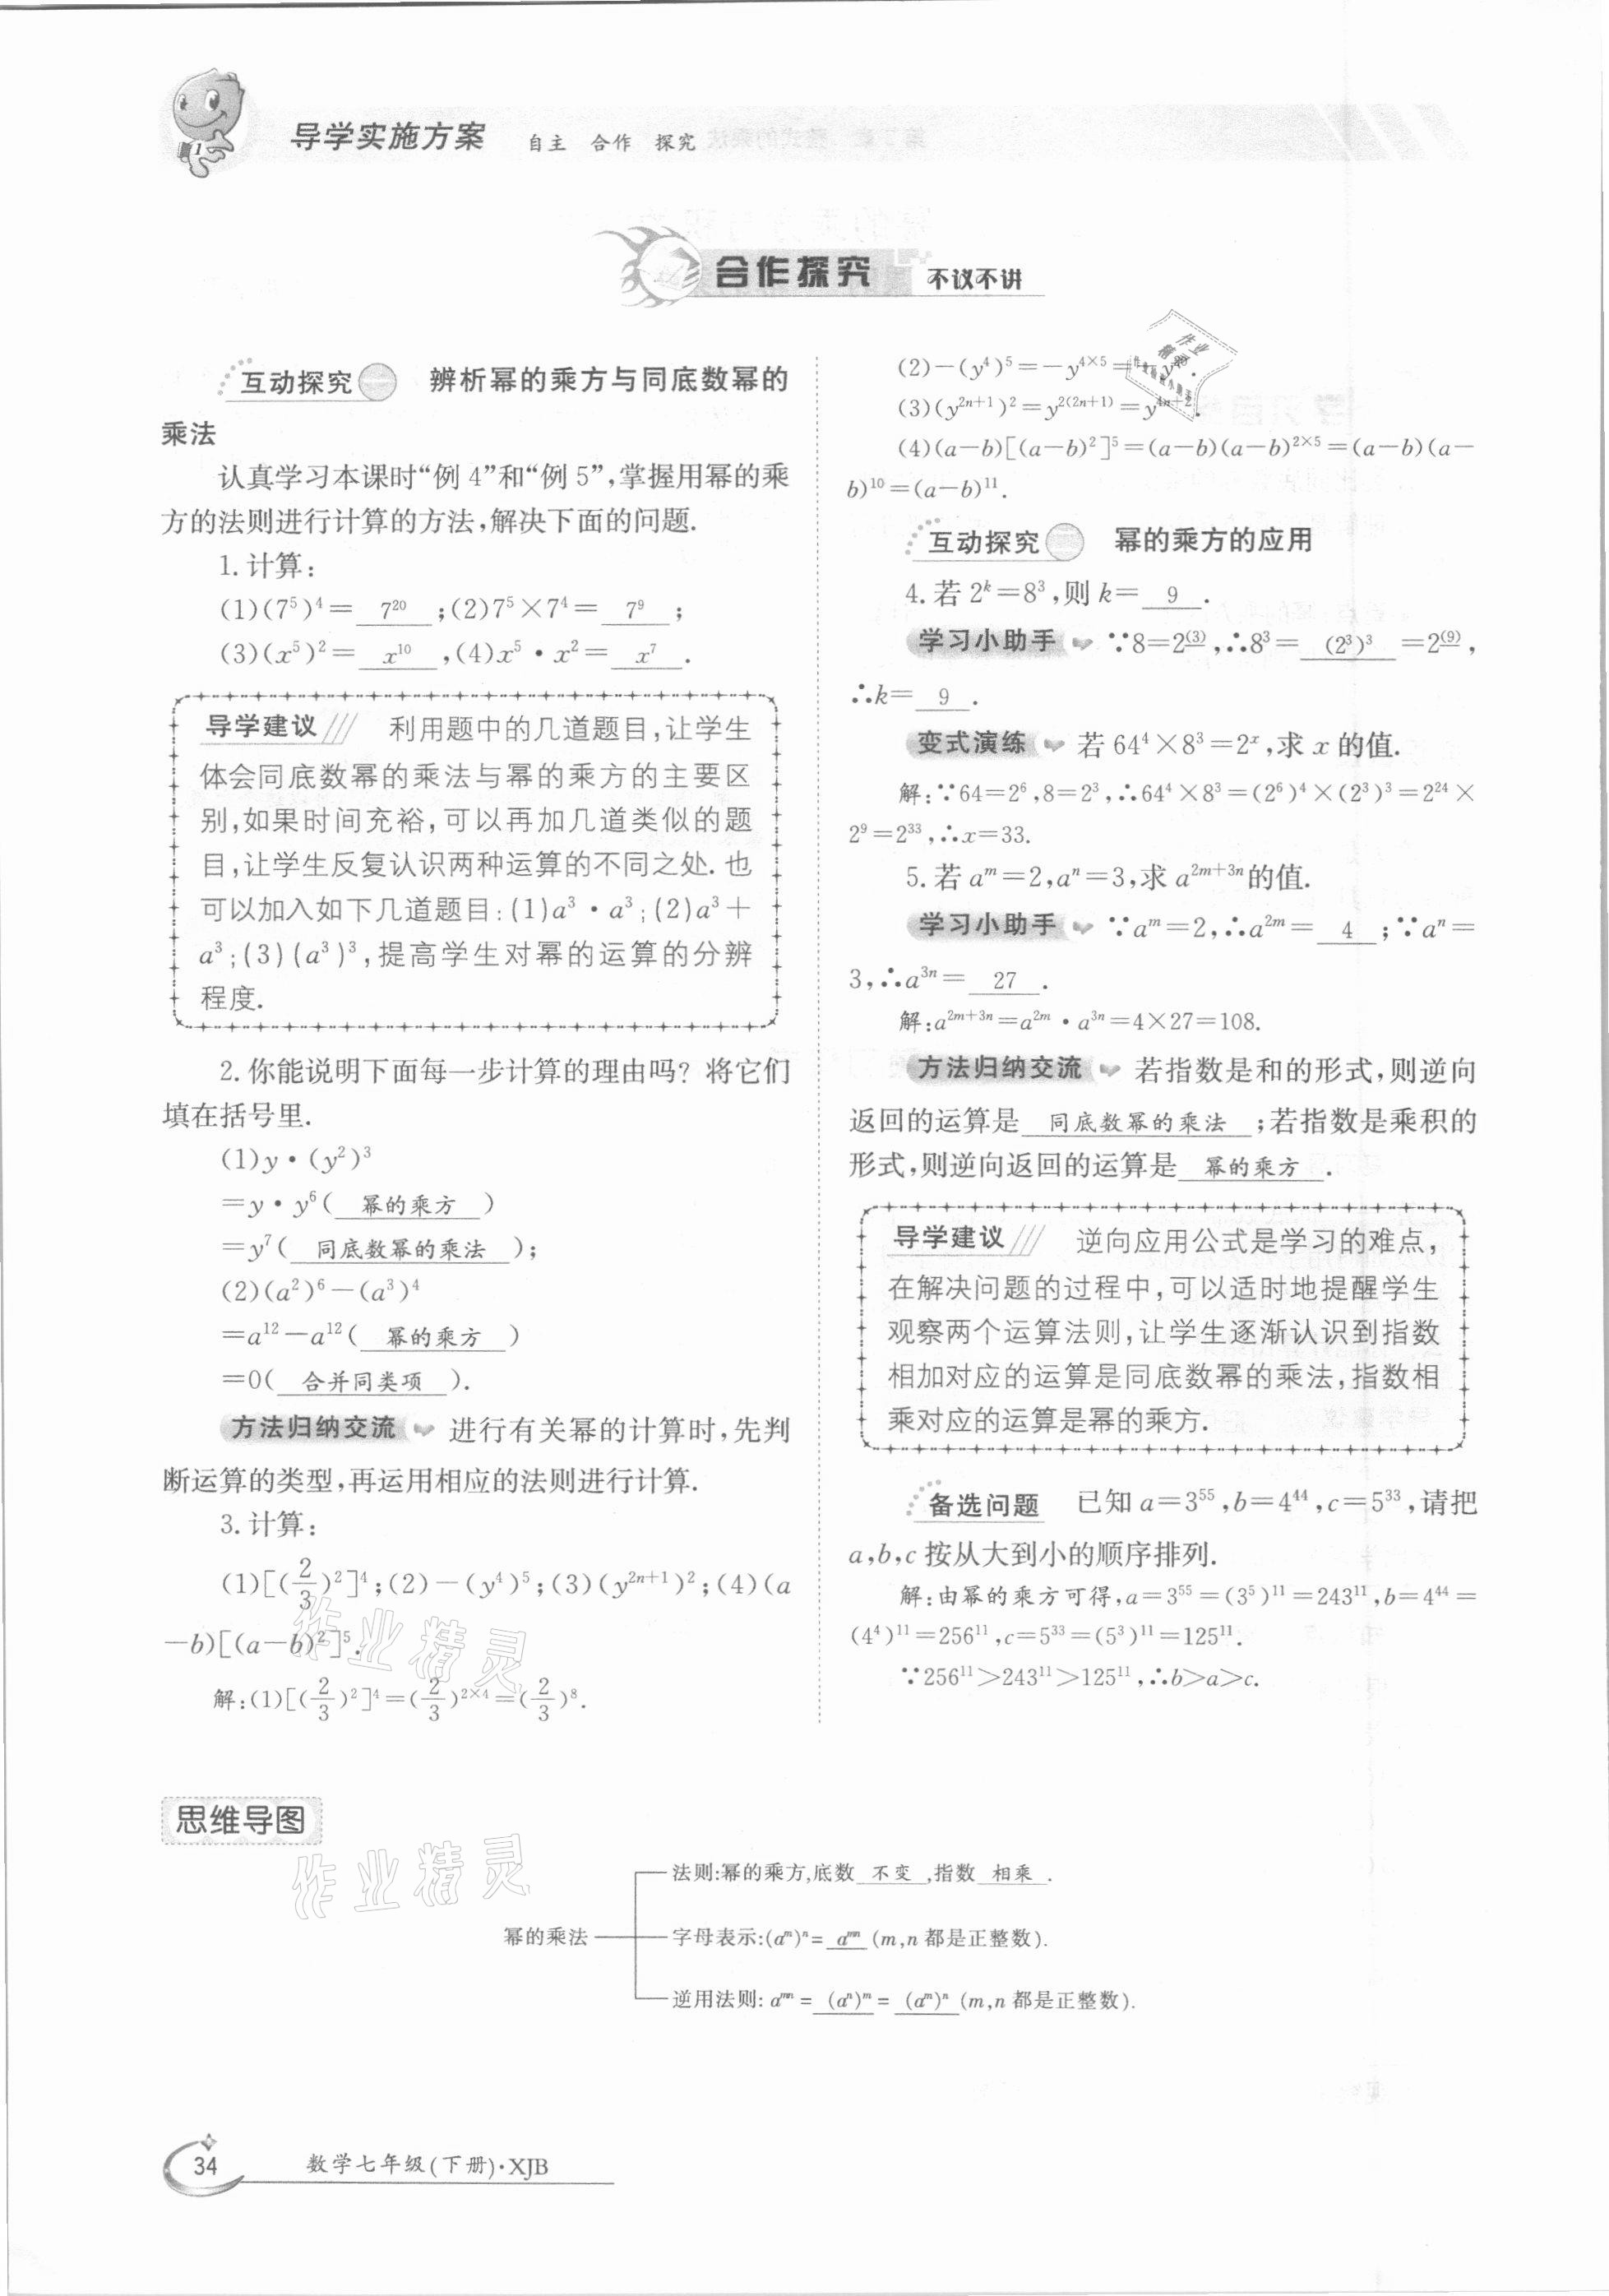 导学实施方案 自主 合作 探究
合作探究 不议不讲
互动探究一 辨析幂的乘方与同底数幂的
乘法
认真学习本课时“例 4”和“例 5”,掌握用幂的乘
方的法则进行计算的方法,解决下面的问题.
1. 计算:
(1)(7⁵)⁴= 7²⁰ ;(2)7⁵×7⁴= 7⁹ ;
(3)(x⁵)²= x¹⁰ ,(4)x⁵·x²= x⁷ .
导学建议 利用题中的几道题目,让学生
体会同底数幂的乘法与幂的乘方的主要区
别,如果时间充裕,可以再加几道类似的题
目,让学生反复认识两种运算的不同之处. 也
可以加入如下几道题目:(1)a³·a³;(2)a³+
a³;(3)(a³)³,提高学生对幂的运算的分辨
程度.
2. 你能说明下面每一步计算的理由吗? 将它们
填在括号里.
(1)y·(y²)³
=y·y⁶( 幂的乘方 )
=y⁷( 同底数幂的乘法 );
(2)(a²)⁶-(a³)⁴
=a¹²-a¹²( 幂的乘方 )
=0( 合并同类项 ).
方法归纳交流 进行有关幂的计算时,先判
断运算的类型,再运用相应的法则进行计算.
3. 计算:
(1)[(2/3)²]⁴;(2)-(y⁴)⁵;(3)(y²ⁿ⁺¹)²;(4)(a
-b)[(a-b)²]⁵.
解:(1)[(2/3)²]⁴=(2/3)²ˣ⁴=(2/3)⁸.
(2)-(y⁴)⁵=-y⁴ˣ⁵=-y²⁰.
(3)(y²ⁿ⁺¹)²=y²⁽²ⁿ⁺¹⁾=y⁴ⁿ⁺².
(4)(a-b)[(a-b)²]⁵=(a-b)(a-b)²ˣ⁵=(a-b)(a-
b)¹⁰=(a-b)¹¹.
互动探究 幂的乘方的应用
4. 若 2ᵏ=8³,则 k= 9 .
学习小助手 ∵8=2⁽³⁾,∴8³= (2³)³ =2⁽⁹⁾,
∴k= 9 .
变式演练 若 64⁴×8³=2ˣ,求 x 的值.
解:∵64=2⁶,8=2³,∴64⁴×8³=(2⁶)⁴×(2³)³=2²⁴×
2⁹=2³³,∴x=33.
5. 若 aᵐ=2,aⁿ=3,求 a²ᵐ⁺³ⁿ的值.
学习小助手 ∵aᵐ=2,∴a²ᵐ= 4 ;∵aⁿ=
3,∴a³ⁿ= 27 .
解:a²ᵐ⁺³ⁿ=a²ᵐ·a³ⁿ=4×27=108.
方法归纳交流 若指数是和的形式,则逆向
返回的运算是 同底数幂的乘法 ;若指数是乘积的
形式,则逆向返回的运算是 幂的乘方 .
导学建议 逆向应用公式是学习的难点,
在解决问题的过程中,可以适时地提醒学生
观察两个运算法则,让学生逐渐认识到指数
相加对应的运算是同底数幂的乘法,指数相
乘对应的运算是幂的乘方.
备选问题 已知 a=3⁵⁵,b=4⁴⁴,c=5³³,请把
a,b,c 按从大到小的顺序排列.
解:由幂的乘方可得,a=3⁵⁵=(3⁵)¹¹=243¹¹,b=4⁴⁴=
(4⁴)¹¹=256¹¹,c=5³³=(5³)¹¹=125¹¹.
∵256¹¹>243¹¹>125¹¹,∴b>a>c.
作业精灵
思维导图
作业精灵
法则:幂的乘方,底数 不变 ,指数 相乘 .
幂的乘法
字母表示:(aᵐ)ⁿ= aᵐⁿ (m,n 都是正整数).
逆用法则: aᵐⁿ= (aⁿ)ᵐ = (aᵐ)ⁿ (m,n 都是正整数).
34 数学七年级(下册)·XJB